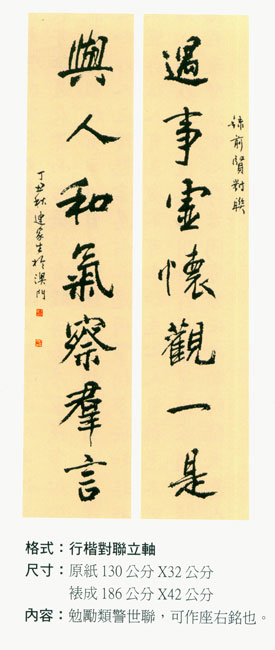 錄前賢對聯
遇事虛懷觀一是
與人和氣察羣言
丁丑秋連家生於澳門
格式：行楷對聯立軸
尺寸：原紙 130 公分 X32 公分
裱成 186 公分 X42 公分
內容：勉勵類警世聯，可作座右銘也。